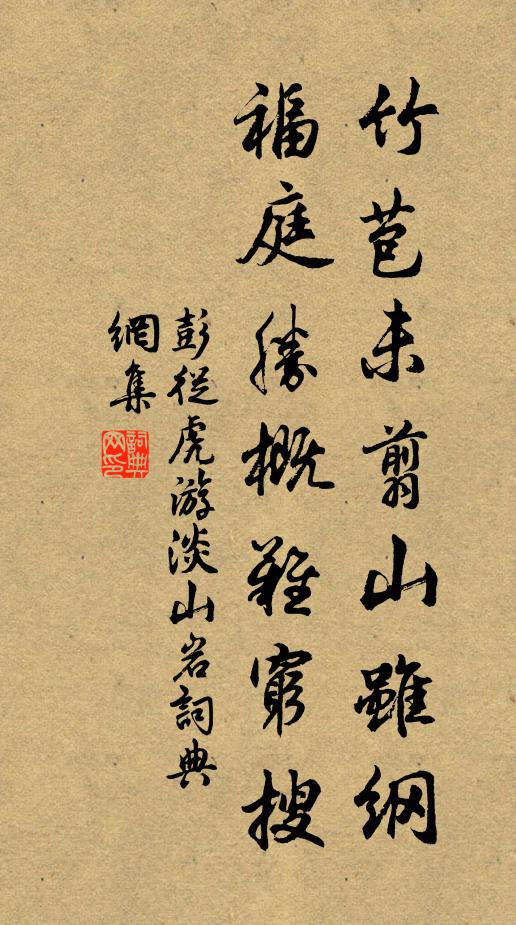 竹苞未翦山雖纲
福庭勝概難窮搜
彭從虎游淡山岩詞典
網集
詞典
网印